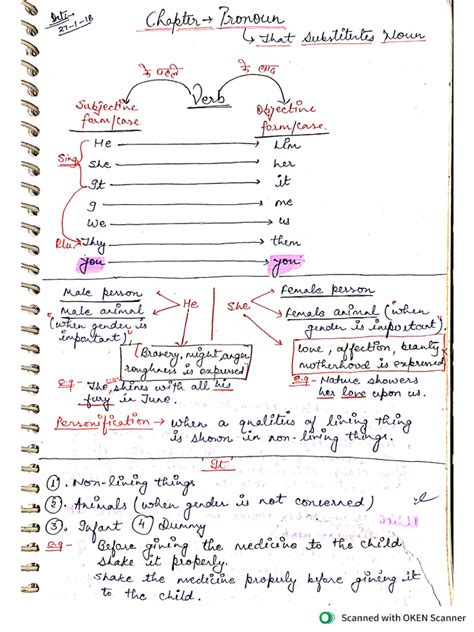 27-1-18
Chapter → Pronoun
↳ That substitutes Noun
के पहले
के बाद
Verb
Subjective
form/case
Objective
form/case.
He → him
Sing She → her
It → it
I → me
we → us
Plu. They → them
you → you
Male person
Male animal
(when gender is
important)
He
She
Female person
Female animal (when
gender is important)
Bravery, might, anger
roughness is expressed
love, affection, beauty
motherhood is expressed
e.g - The shines with all his
fury in June.
e.g - Nature showers
her love upon us.
Personification → when a qualities of living thing
is shown in non-living things.
It
①. Non-living things
②. Animals (when gender is not concerned)
③. Infant ④ Dummy
e.g - Before giving the medicine to the child
shake it properly.
shake the medicine properly before giving it
to the child.
Scanned with OKEN Scanner